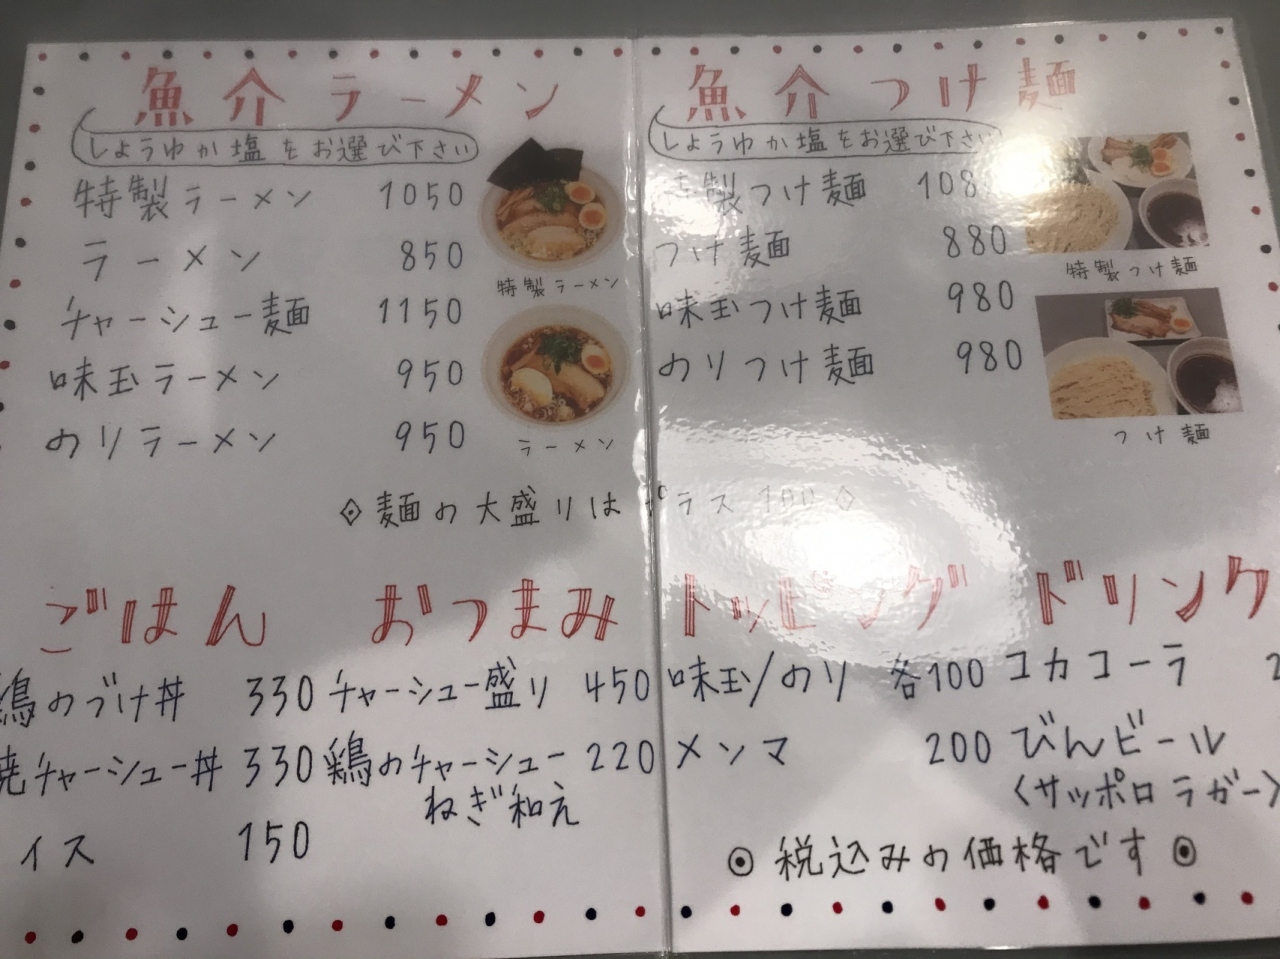 魚介ラーメン
しょうゆか塩をお選び下さい
特製ラーメン 1050
ラーメン 850
チャーシュー麺 1150
味玉ラーメン 950
のりラーメン 950
特製ラーメン
ラーメン
魚介つけ麺
しょうゆか塩をお選び下さい
製つけ麺 108
つけ麺 880
味玉つけ麺 980
のりつけ麺 980
特製つけ麺
つけ麺
◇麺の大盛りはプラス 100◇
ごはん
鶏のづけ丼 330
焼チャーシュー丼 330
イス 150
おつまみ
チャーシュー盛り 450
鶏のチャーシュー 220
ねぎ和え
トッピング
味玉/のり 各100
メンマ 200
ドリンク
コカコーラ 2
びんビール
<サッポロラガー>
◎税込みの価格です◎